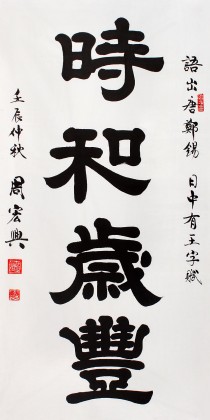 語出唐鄭錫 日中有王字賦
時和歲豐
壬辰仲秋 周宏興